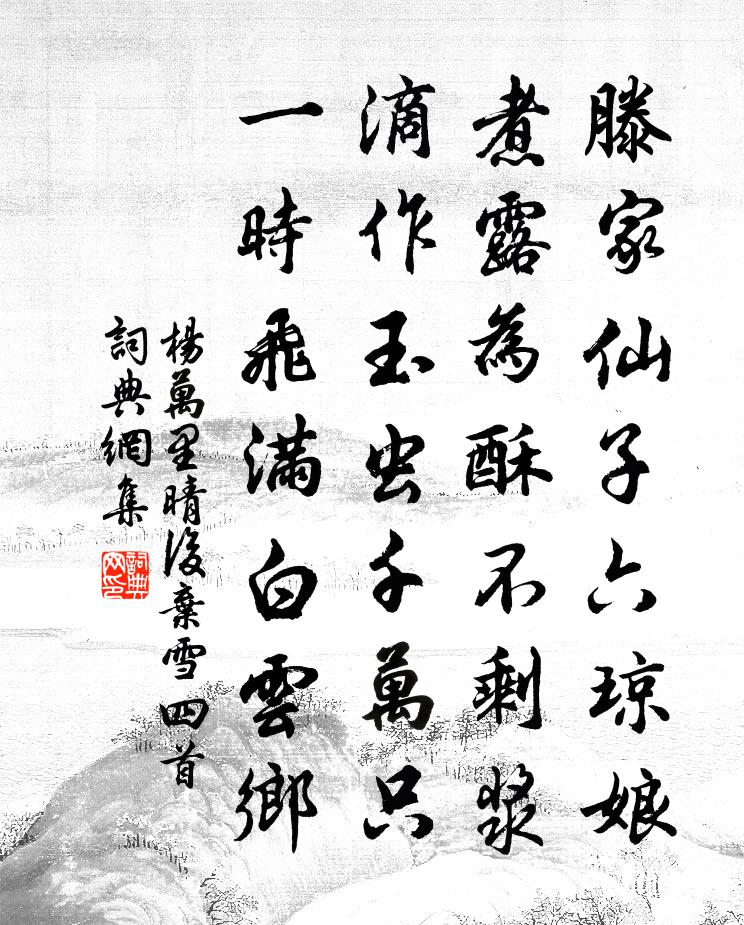 滕家仙子六琼娘
煮露為酥不剩浆
滴作玉虫千萬只
一時飛滿白雲鄉
楊萬里晴後棄雪四首
詞典網集
詞典网印